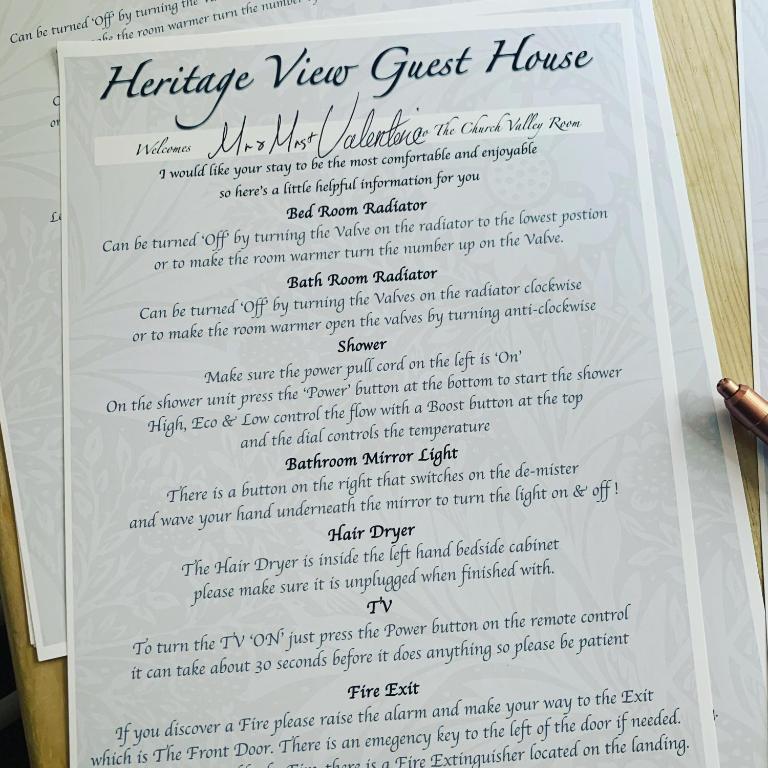 Can be turned 'Off' by turning the
the room warmer turn the number
Heritage View Guest House
Welcomes Mr & Mrs Valentine to The Church Valley Room
I would like your stay to be the most comfortable and enjoyable
so here's a little helpful information for you
Bed Room Radiator
Can be turned 'Off' by turning the Valve on the radiator to the lowest postion
or to make the room warmer turn the number up on the Valve.
Bath Room Radiator
Can be turned 'Off' by turning the Valves on the radiator clockwise
or to make the room warmer open the valves by turning anti-clockwise
Shower
Make sure the power pull cord on the left is 'On'
On the shower unit press the 'Power' button at the bottom to start the shower
High, Eco & Low control the flow with a Boost button at the top
and the dial controls the temperature
Bathroom Mirror Light
There is a button on the right that switches on the de-mister
and wave your hand underneath the mirror to turn the light on & off !
Hair Dryer
The Hair Dryer is inside the left hand bedside cabinet
please make sure it is unplugged when finished with.
TV
To turn the TV 'ON' just press the Power button on the remote control
it can take about 30 seconds before it does anything so please be patient
Fire Exit
If you discover a Fire please raise the alarm and make your way to the Exit
which is The Front Door. There is an emegency key to the left of the door if needed.
Fire, there is a Fire Extinguisher located on the landing.